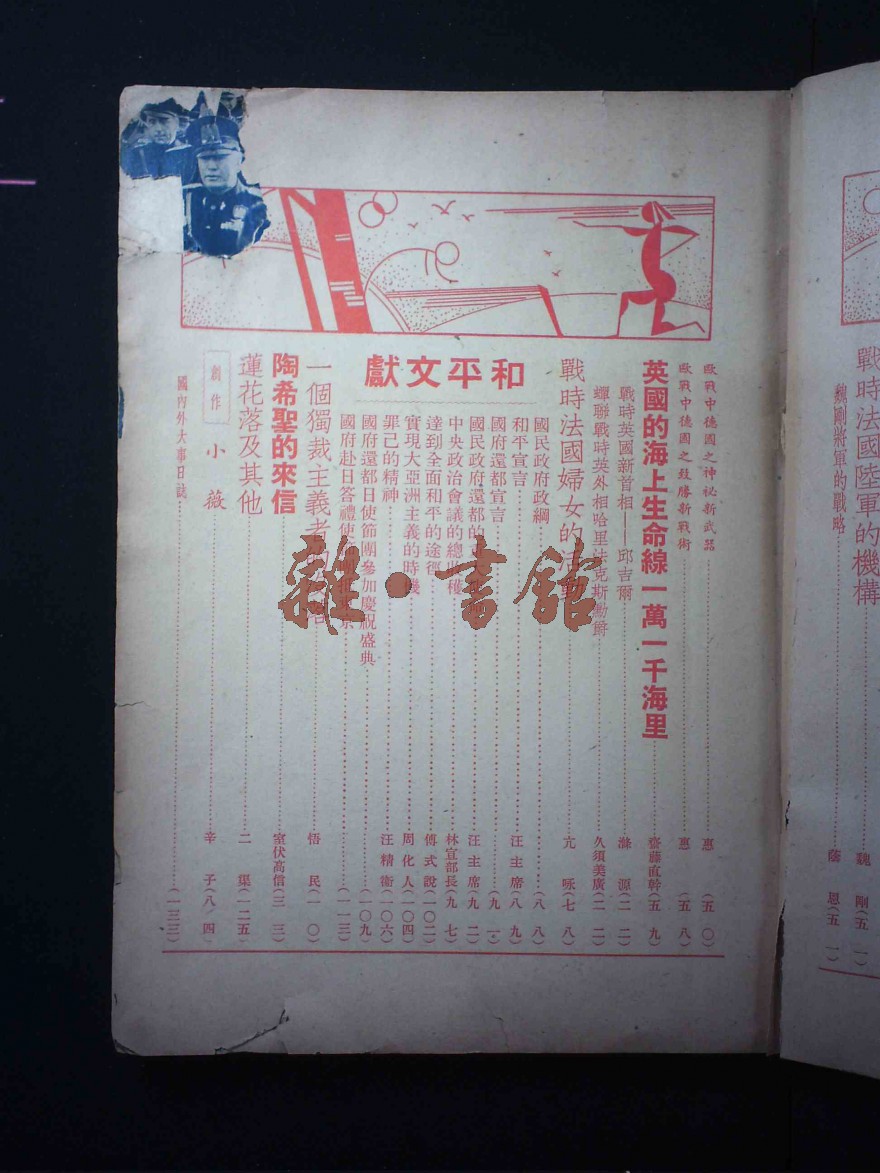 歐戰中德國之神祕新武器 惠 (五〇)
歐戰中德國之殺勝新戰術 惠 (五八)
英國的海上生命線一萬一千海里 齋藤直幹(五九)
戰時英國新首相——邱吉爾 滌源(二二)
蟬聯戰時英外相哈里法克斯勳爵 久須美廣(二二)
戰時法國婦女的活動 亢咏(七八)
和平文獻
國民政府政綱 (八八)
和平宣言 汪主席(八九)
國府還都宣言 (九一)
國民政府還都的 汪主席(九二)
中央政治會議的總收穫 林宣部長(九七)
達到全面和平的途徑 傅式說(一〇二)
實現大亞洲主義的時機 周化人(一〇四)
罪己的精神 汪精衛(一〇六)
國府還都日使節團參加慶祝盛典 (一〇九)
國府赴日答禮使 (一一三)
一個獨裁主義者的 悟民(一〇)
陶希聖的來信 室伏高信(三三)
蓮花落及其他 二集(一二五)
創作 小薇 辛子(八四)
國內外大事日誌 (一三三)
戰時法國陸軍的機構 魏剛(五一)
魏剛將軍的戰略 蔭恩(五一)
雜·書館